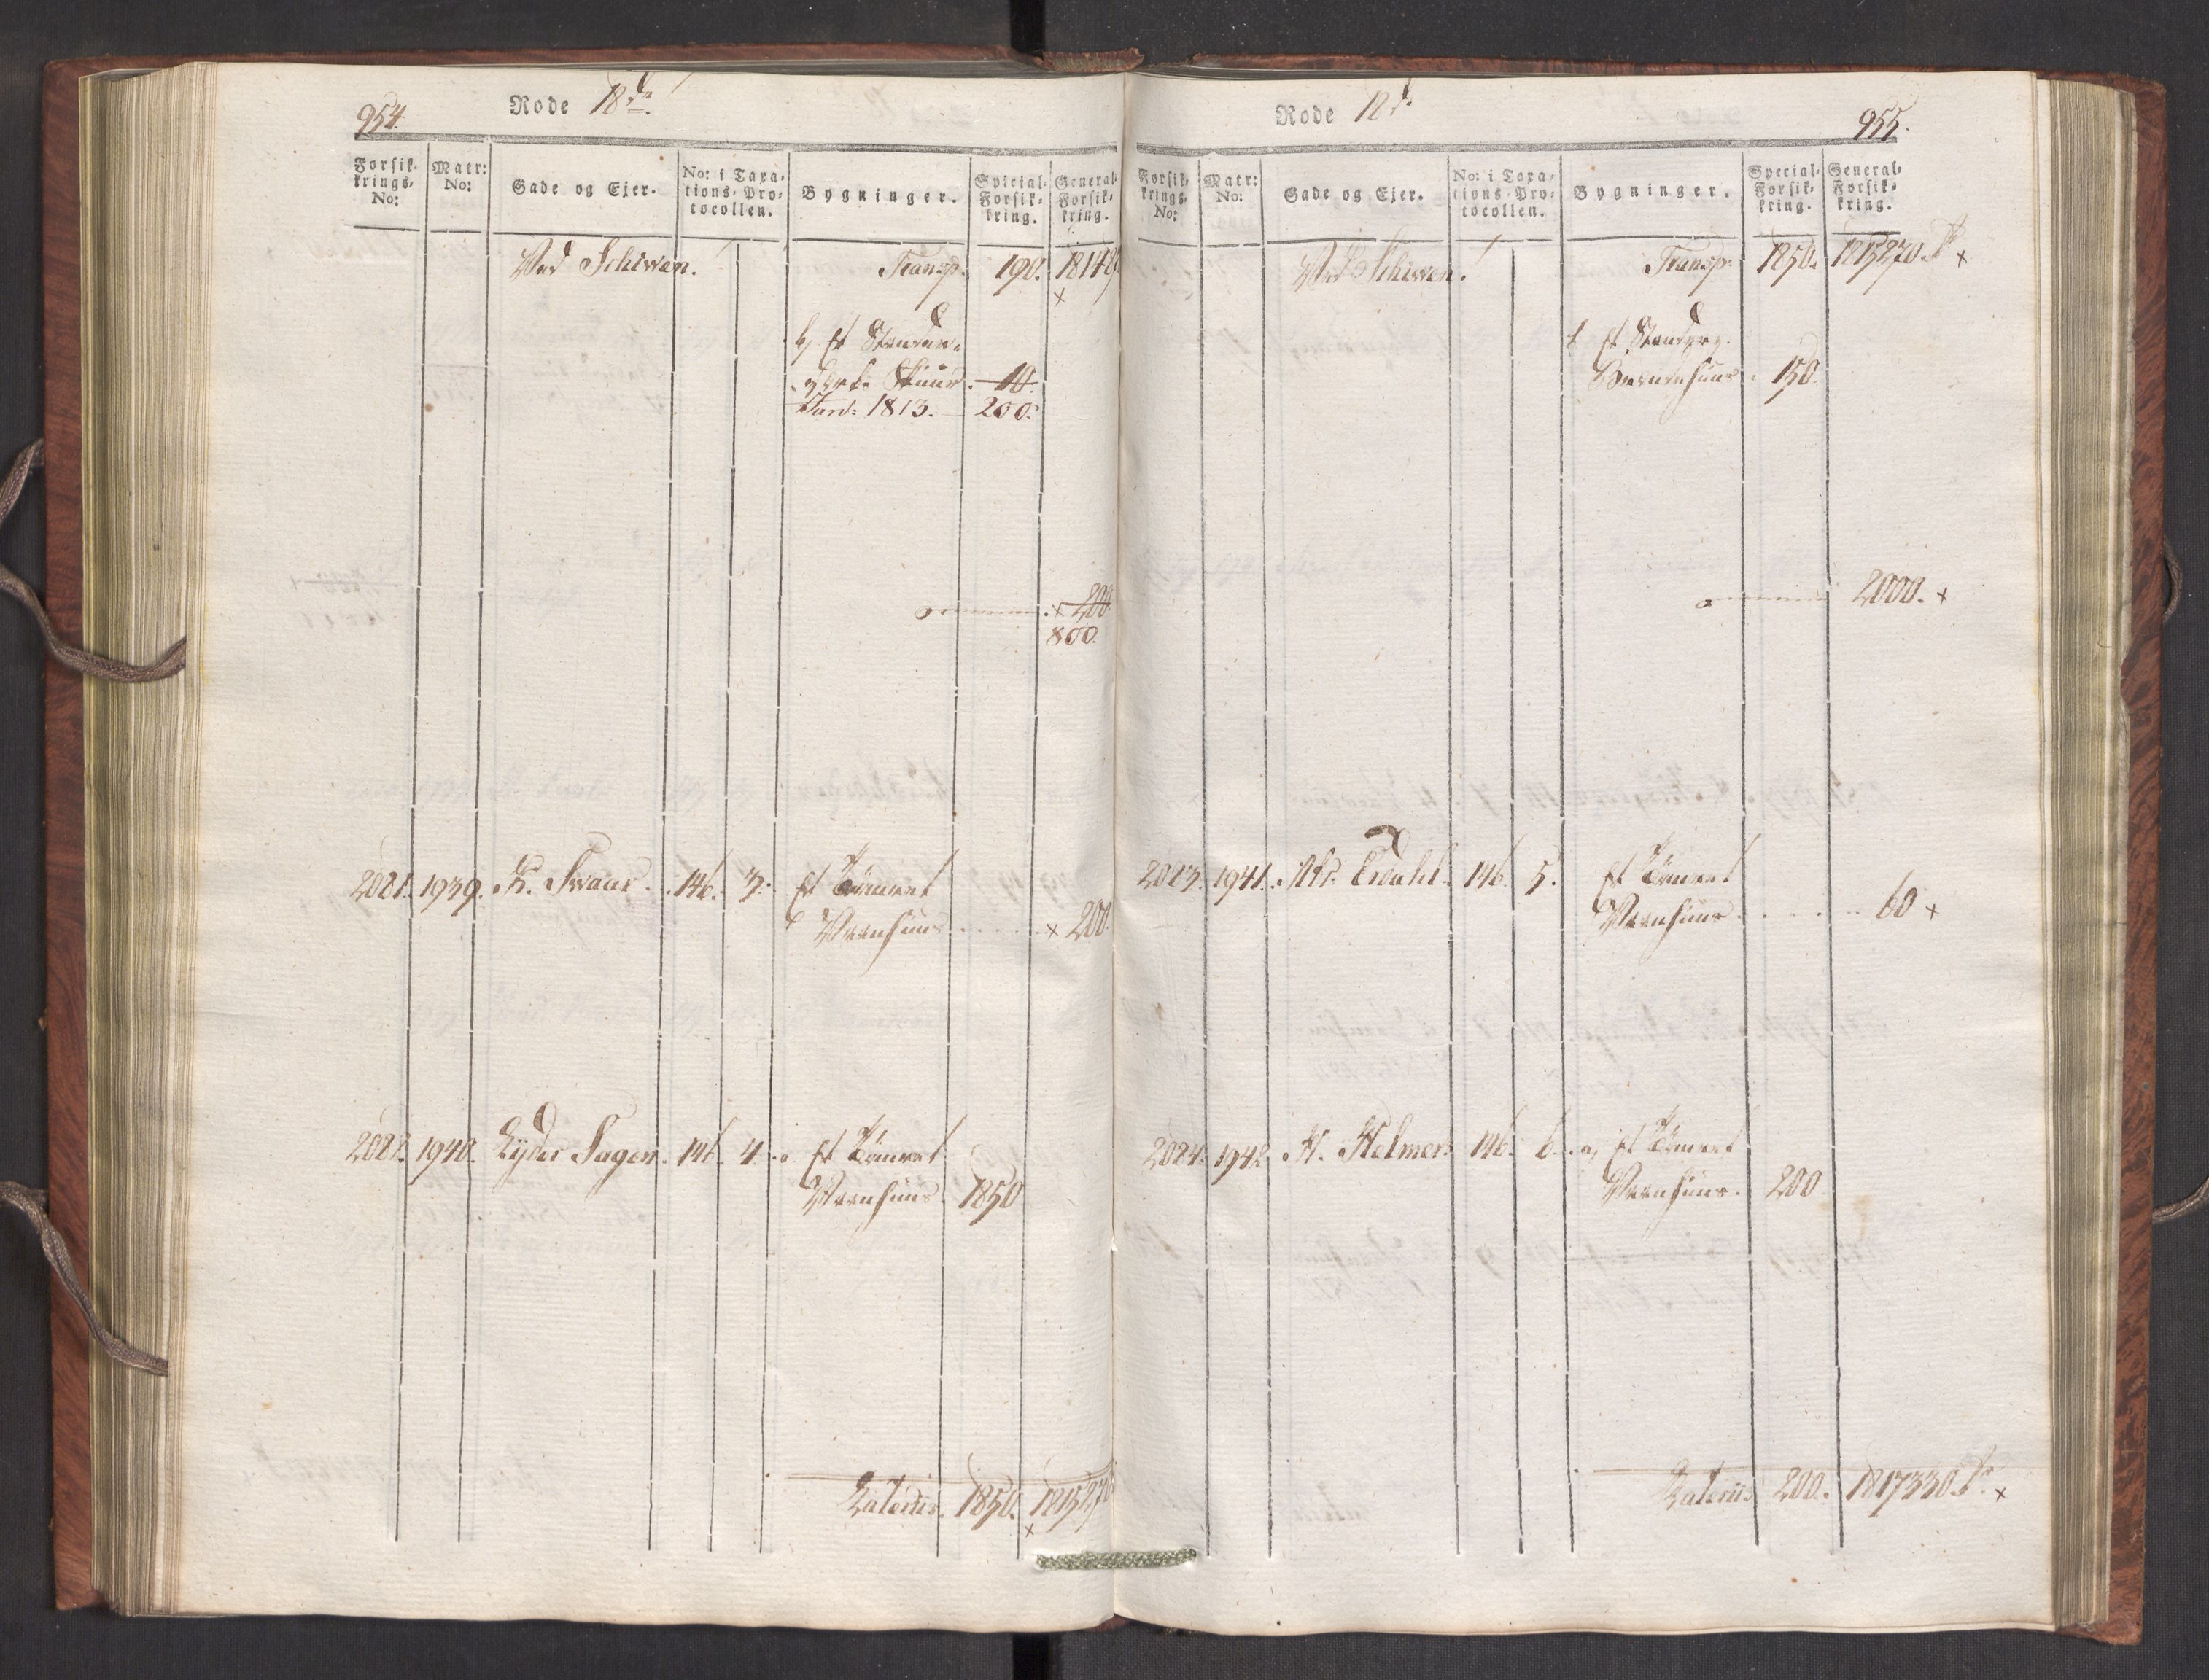 954.
Rode 18de
Forsik-
krings-
No:
Matr:
No:
Gade og Ejer.
No: i Taxa-
tions-Pro-
tocollen.
Bygninger.
Special-
Forsik-
kring.
General-
Forsik-
kring.
Ved Schiven.
Transp. 190. 18148
b, Et Steendæk.
Skuur. 10.
1813. 200.
200.
800.
2081. 1939. K. Svaar. 146. 3. Et Tømret
Vaanhuus 200.
2082. 1940. Lyder Sagen. 146. 4. a Et Tømret
Vaanhuus. 1850
Lateriis. 1850. 181527
Rode 18d.
955.
Forsik-
krings-
No:
Matr:
No:
Gade og Ejer.
No: i Taxa-
tions-Pro-
tocollen.
Bygninger.
Special-
Forsik-
kring.
General-
Forsik-
kring.
Ved Schiven.
Transp. 1850. 1815270.
b Et
150.
2000.
2083. 1941. Mr. Erdahl. 146. 5. Et Tømret
Vaanhuus 60
2084. 1942. H. Helmers 146. 6. a, Et Tømret
Vaanhuus. 200
Lateriis 200. 1817330.